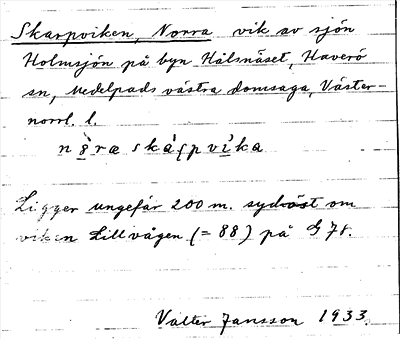 Skarpviken, Norra vik av sjön
Holmsjön på byn Hålsnäset, Haverö
sn, Medelpads västra domsaga, Väster-
norrl. l.
Ligger ungefär 200 m. sydväst om
viken Lillvågen (= 88) på G 78.
Valter Jansson 1933.